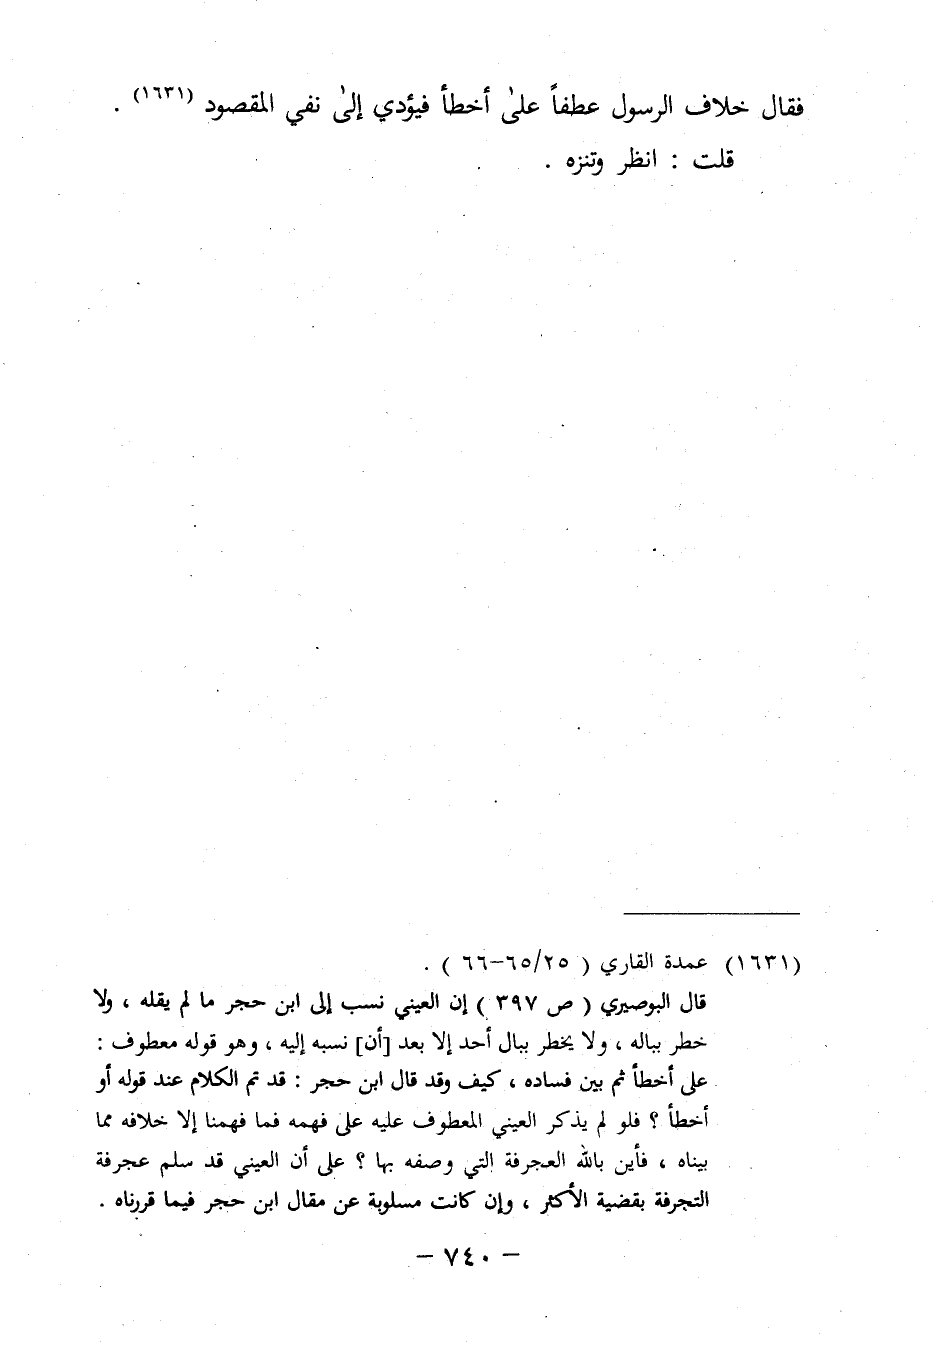 فقال خلاف الرسول عطفاً علىٰ أخطأ فيؤدي إلىٰ نفي المقصود (١٦٣١) .
قلت : انظر وتنزه .
(١٦٣١) عمدة القاري ( ٦٥/٢٥-٦٦ ) .
قال البوصيري ( ص ٣٩٧ ) إن العيني نسب إلى ابن حجر ما لم يقله ، ولا
خطر بباله ، ولا يخطر ببال أحد إلا بعد [أن] نسبه إليه ، وهو قوله معطوف :
على أخطأ ثم بين فساده ، كيف وقد قال ابن حجر : قد تم الكلام عند قوله أو
أخطأ ؟ فلو لم يذكر العيني المعطوف عليه على فهمه فما فهمنا إلا خلافه مما
بيناه ، فأين بالله العجرفة التي وصفه بها ؟ على أن العيني قد سلم عجرفة
التجرفة بقضية الأكثر ، وإن كانت مسلوبة عن مقال ابن حجر فيما قررناه .
– ٧٤٠ –